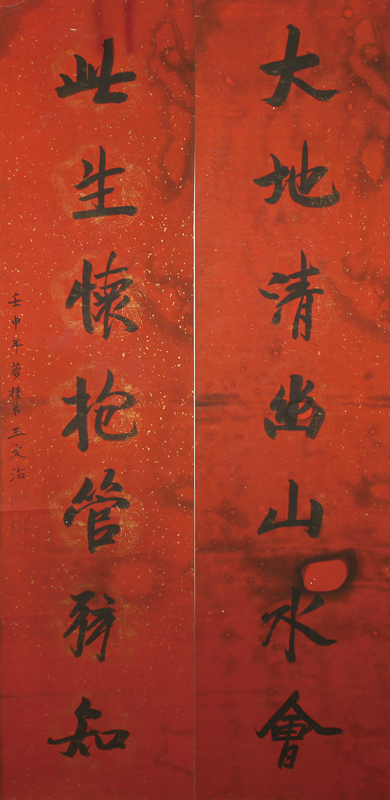 大地清幽山水會
此生懷抱管弦知
壬申年夢樓弟王文治